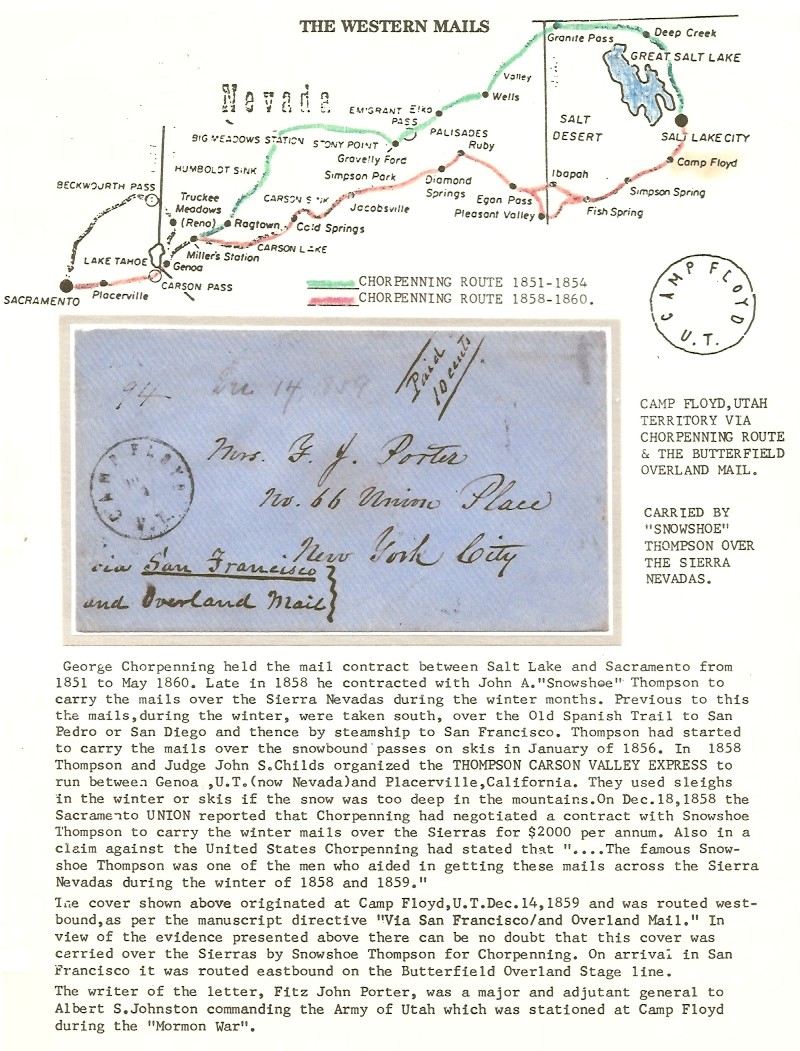 THE WESTERN MAILS
Granite Pass
Deep Creek
GREAT SALT LAKE
Valley
Nevada
Wells
EMIGRANT PASS
Elko
SALT DESERT
SALT LAKE CITY
BIG MEADOWS STATION
STONY POINT
PALISADES
Gravelly Ford
Ruby
Camp Floyd
HUMBOLDT SINK
Simpson Park
Diamond Springs
Ibapah
Simpson Spring
BECKWOURTH PASS
Truckee Meadows (Reno)
CARSON SINK
Jacobsville
Egan Pass
Pleasant Valley
Fish Spring
Ragtown
Cold Springs
CARSON LAKE
LAKE TAHOE
Miller's Station
Genoa
SACRAMENTO
Placerville
CARSON PASS
CHORPENNING ROUTE 1851-1854
CHORPENNING ROUTE 1858-1860.
CAMP FLOYD
U.T.
Paid
10 cents
94
Dec 14 1859
CAMP FLOYD
U.T.
Mrs. F. J. Porter
No. 66 Union Place
New York City
via San Francisco
and Overland Mail
CAMP FLOYD,UTAH
TERRITORY VIA
CHORPENNING ROUTE
& THE BUTTERFIELD
OVERLAND MAIL.
CARRIED BY
"SNOWSHOE"
THOMPSON OVER
THE SIERRA
NEVADAS.
George Chorpenning held the mail contract between Salt Lake and Sacramento from
1851 to May 1860. Late in 1858 he contracted with John A."Snowshoe" Thompson to
carry the mails over the Sierra Nevadas during the winter months. Previous to this
the mails,during the winter, were taken south, over the Old Spanish Trail to San
Pedro or San Diego and thence by steamship to San Francisco. Thompson had started
to carry the mails over the snowbound passes on skis in January of 1856. In 1858
Thompson and Judge John S.Childs organized the THOMPSON CARSON VALLEY EXPRESS to
run between Genoa ,U.T.(now Nevada)and Placerville,California. They used sleighs
in the winter or skis if the snow was too deep in the mountains.On Dec.18,1858 the
Sacramento UNION reported that Chorpenning had negotiated a contract with Snowshoe
Thompson to carry the winter mails over the Sierras for $2000 per annum. Also in a
claim against the United States Chorpenning had stated that "....The famous Snow-
shoe Thompson was one of the men who aided in getting these mails across the Sierra
Nevadas during the winter of 1858 and 1859."
The cover shown above originated at Camp Floyd,U.T.Dec.14,1859 and was routed west-
bound,as per the manuscript directive "Via San Francisco/and Overland Mail." In
view of the evidence presented above there can be no doubt that this cover was
carried over the Sierras by Snowshoe Thompson for Chorpenning. On arrival in San
Francisco it was routed eastbound on the Butterfield Overland Stage line.
The writer of the letter, Fitz John Porter, was a major and adjutant general to
Albert S.Johnston commanding the Army of Utah which was stationed at Camp Floyd
during the "Mormon War".